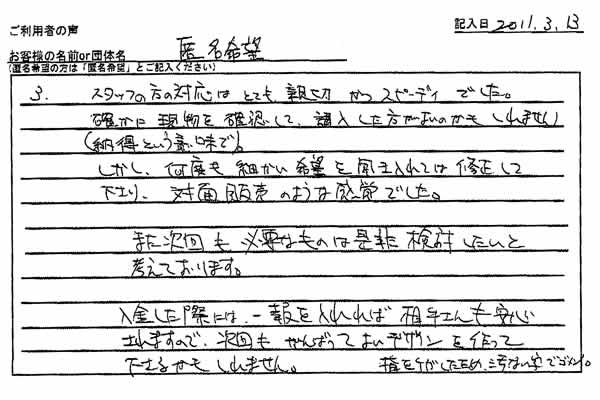 ご利用者の声
記入日 2011.3.13
お客様の名前or団体名 匿名希望
(匿名希望の方は「匿名希望」とご記入ください)
3. スタッフの方の対応はとても親切かつスピーディでした。
確かに現物を確認して、購入した方がよいのかもしれません
(納得という意味で)。
しかし、何度も細かい希望を聞き入れては修正して
下さり、対面販売のような感覚でした。
また次回も必要なものは是非検討したいと
考えております。
入金した際には、一報を入れれば相手さんも安心
されますので、次回もがんばってよいデザインを作って
下さるかもしれません。
指をケガしたため、きたない字でゴメン。